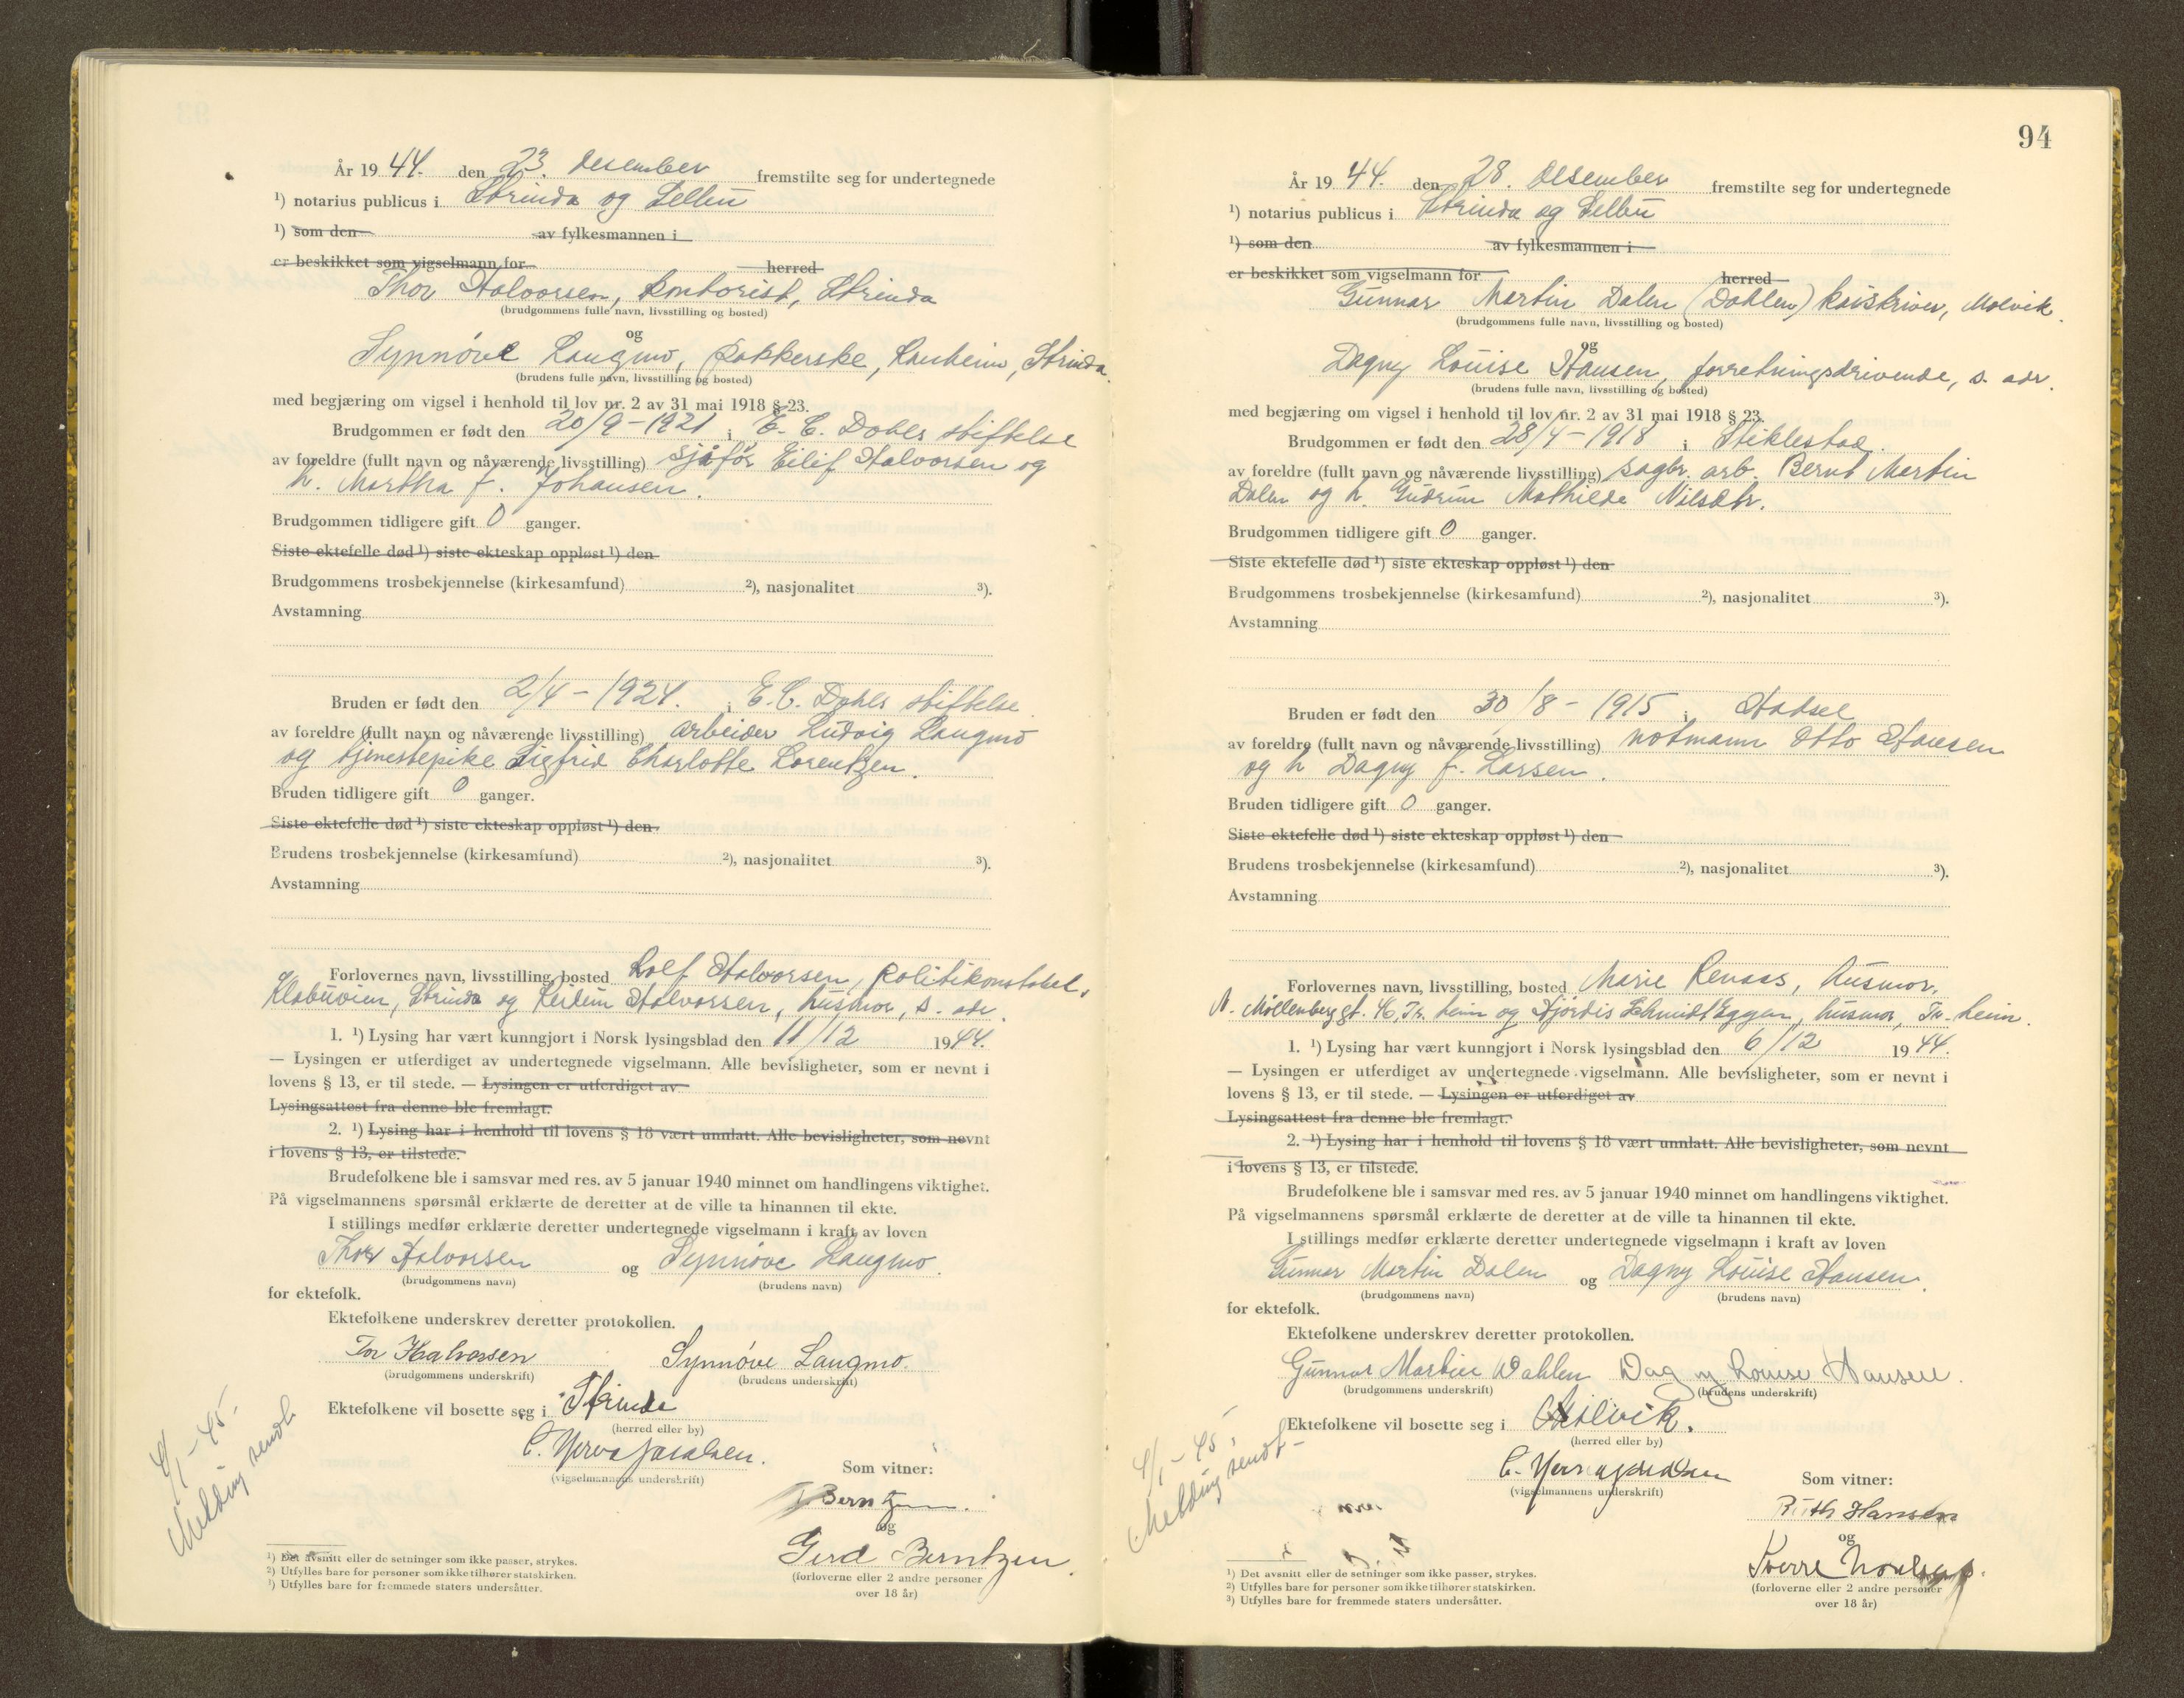 År 1944. den 23. desember fremstilte seg for undertegnede
¹) notarius publicus i Strinda og Selbu
¹) som den av fylkesmannen i
er beskikket som vigselmann for herred
Thor Halvorsen, kontorist, Strinda
(brudgommens fulle navn, livsstilling og bosted)
og
Synnöve Langmo, pakkerske, Ranheim, Strinda.
(brudens fulle navn, livsstilling og bosted)
med begjæring om vigsel i henhold til lov nr. 2 av 31 mai 1918 § 23.
Brudgommen er født den 20/9-1921 i E. C. Dahls stiftelse
av foreldre (fullt navn og nåværende livsstilling) sjåfør Eilif Halvorsen og
h. Martha f. Johansen.
Brudgommen tidligere gift 0 ganger.
Siste ektefelle død ¹) siste ekteskap oppløst ¹) den
Brudgommens trosbekjennelse (kirkesamfund) ²), nasjonalitet ³).
Avstamning
Bruden er født den 2/4-1924. i E.C. Dahls stiftelse.
av foreldre (fullt navn og nåværende livsstilling) arbeider Ludvig Langmo
og tjenestepike Sigfrid Charlotte Lorentzen.
Bruden tidligere gift 0 ganger.
Siste ektefelle død ¹) siste ekteskap oppløst ¹) den
Brudens trosbekjennelse (kirkesamfund) ²), nasjonalitet ³).
Avstamning
Forlovernes navn, livsstilling, bosted Rolf Halvorsen, politikonstabel,
Klæbuveien, Strinda og Reidun Halvorsen, husmor, s. adr.
1. ¹) Lysing har vært kunngjort i Norsk lysingsblad den 11/12 1944.
— Lysingen er utferdiget av undertegnede vigselmann. Alle bevisligheter, som er nevnt i
lovens § 13, er til stede. — Lysingen er utferdiget av
Lysingsattest fra denne ble fremlagt.
2. ¹) Lysing har i henhold til lovens § 18 vært unnlatt. Alle bevisligheter, som nevnt
i lovens § 13, er tilstede.
Brudefolkene ble i samsvar med res. av 5 januar 1940 minnet om handlingens viktighet.
På vigselmannens spørsmål erklærte de deretter at de ville ta hinannen til ekte.
I stillings medfør erklærte deretter undertegnede vigselmann i kraft av loven
Thor Halvorsen og Synnöve Langmo.
(brudgommens navn) (brudens navn)
for ektefolk.
Ektefolkene underskrev deretter protokollen.
Tor Halvorsen Synnöve Langmo.
(brudgommens underskrift) (brudens underskrift)
Ektefolkene vil bosette seg i Strinda
(herred eller by)
(vigselmannens underskrift)
Som vitner:
Berntzen.
og
Gerd Berntzen.
(forloverne eller 2 andre personer
over 18 år)
4/1-45.
Melding sendt.
¹) Det avsnitt eller de setninger som ikke passer, strykes.
²) Utfylles bare for personer som ikke tilhører statskirken.
³) Utfylles bare for fremmede staters undersåtter.
94
År 1944. den 28. desember fremstilte seg for undertegnede
¹) notarius publicus i Strinda og Selbu
¹) som den av fylkesmannen i
er beskikket som vigselmann for herred
Gunnar Martin Dalen (Dahlen) kaiskriver, Malvik.
(brudgommens fulle navn, livsstilling og bosted)
og
Dagny Louise Hansen, forretningsdrivende, s. adr.
(brudens fulle navn, livsstilling og bosted)
med begjæring om vigsel i henhold til lov nr. 2 av 31 mai 1918 § 23.
Brudgommen er født den 28/4-1918 i Stiklestad.
av foreldre (fullt navn og nåværende livsstilling) sagbr. arb. Bernt Martin
Dalen og h. Gudrun Mathilde Nilsdtr.
Brudgommen tidligere gift 0 ganger.
Siste ektefelle død ¹) siste ekteskap oppløst ¹) den
Brudgommens trosbekjennelse (kirkesamfund) ²), nasjonalitet ³).
Avstamning
Bruden er født den 30/8-1915 i Hadsel
av foreldre (fullt navn og nåværende livsstilling) notmann Otto Hansen
og h Dagny f. Larsen.
Bruden tidligere gift 0 ganger.
Siste ektefelle død ¹) siste ekteskap oppløst ¹) den
Brudens trosbekjennelse (kirkesamfund) ²), nasjonalitet ³).
Avstamning
Forlovernes navn, livsstilling, bosted Marie Renaas, husmor,
N. Möllenberg gt. 46, Tr. heim og Hjördis Schmidt Eggen, husmor, Tr.heim.
1. ¹) Lysing har vært kunngjort i Norsk lysingsblad den 6/12 1944.
— Lysingen er utferdiget av undertegnede vigselmann. Alle bevisligheter, som er nevnt i
lovens § 13, er til stede. — Lysingen er utferdiget av
Lysingsattest fra denne ble fremlagt.
2. ¹) Lysing har i henhold til lovens § 18 vært unnlatt. Alle bevisligheter, som nevnt
i lovens § 13, er tilstede.
Brudefolkene ble i samsvar med res. av 5 januar 1940 minnet om handlingens viktighet.
På vigselmannens spørsmål erklærte de deretter at de ville ta hinannen til ekte.
I stillings medfør erklærte deretter undertegnede vigselmann i kraft av loven
Gunnar Martin Dalen og Dagny Louise Hansen.
(brudgommens navn) (brudens navn)
for ektefolk.
Ektefolkene underskrev deretter protokollen.
Gunnar Martin Dahlen Dagny Louise Hansen.
(brudgommens underskrift) (brudens underskrift)
Ektefolkene vil bosette seg i Malvik.
(herred eller by)
(vigselmannens underskrift)
Som vitner:
Ruth Hansen
og
Sverre
(forloverne eller 2 andre personer
over 18 år)
4/1-45.
Melding sendt
¹) Det avsnitt eller de setninger som ikke passer, strykes.
²) Utfylles bare for personer som ikke tilhører statskirken.
³) Utfylles bare for fremmede staters undersåtter.